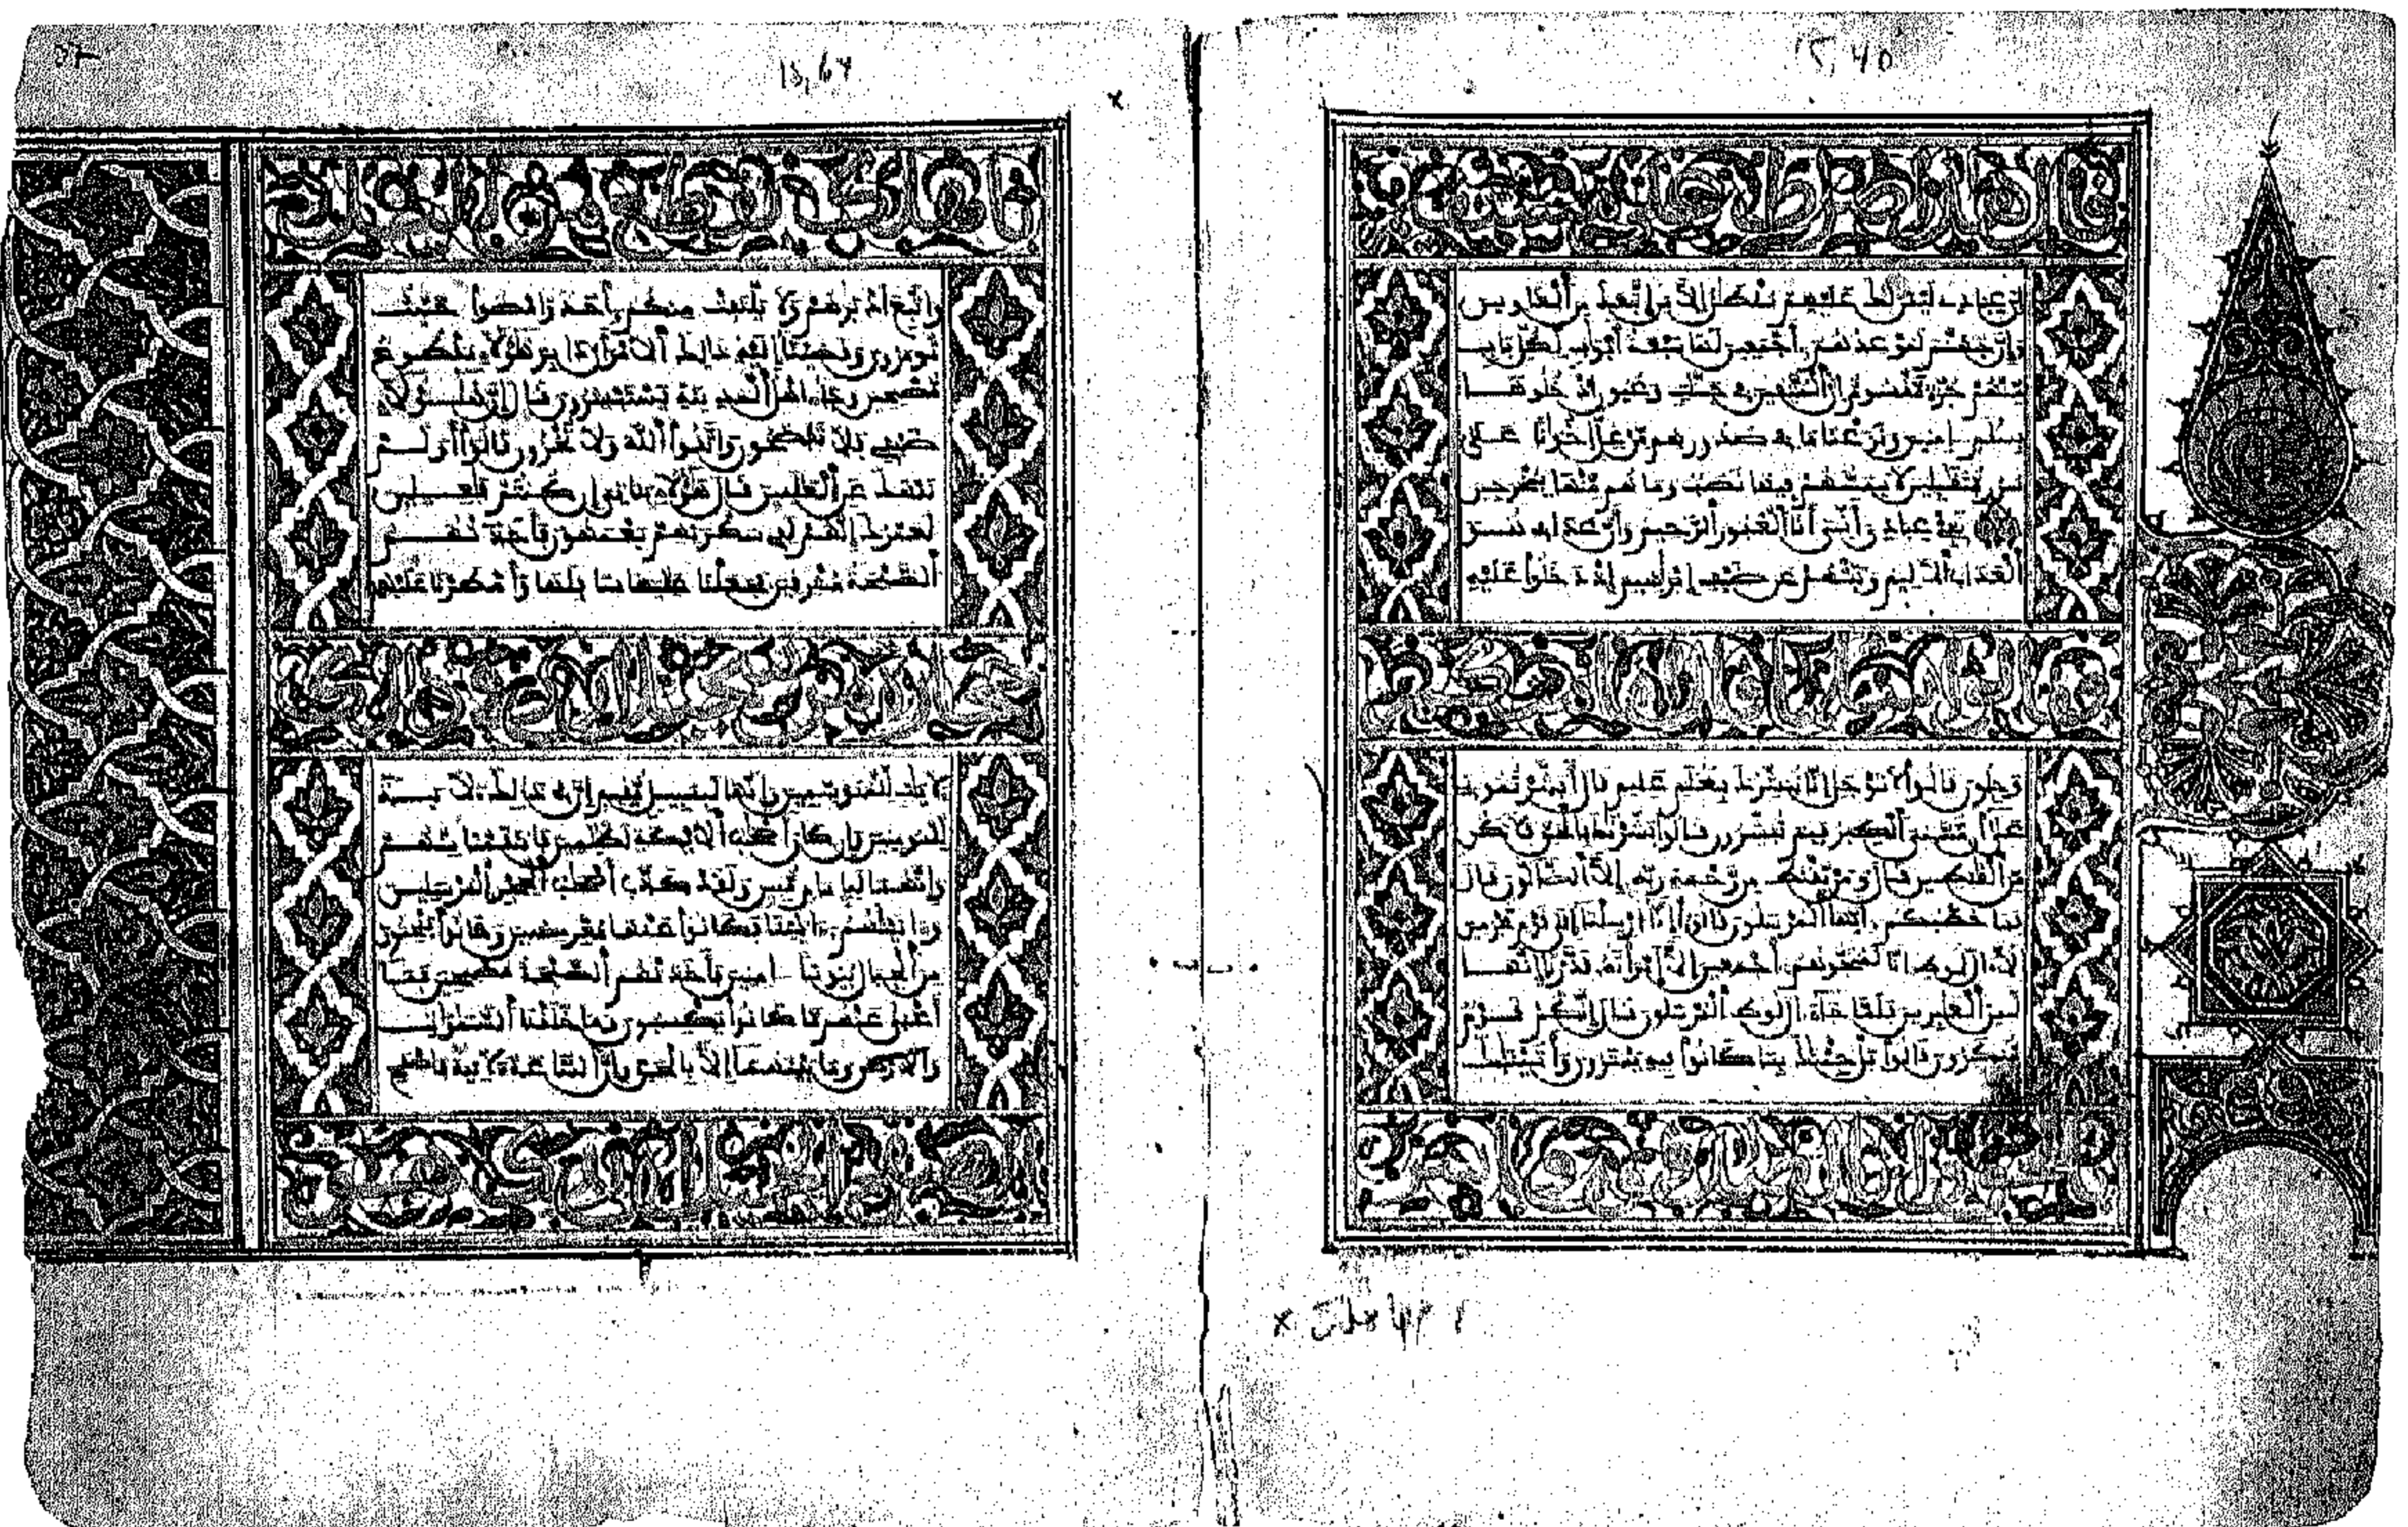 15,40
قال هذا صراط علي مستقيم
إن عبادي ليس لك عليهم سلطن إلا من اتبعك من الغاوين
وإن جهنم لموعدهم أجمعين لها سبعة أبوب لكل باب
منهم جزء مقسوم إن المتقين في جنت وعيون ادخلوها
بسلم امنين ونزعنا ما في صدورهم من غل إخوانا على
سرر متقبلين لا يمسهم فيها نصب وما هم منها بمخرجين
نبئ عبادي أني أنا الغفور الرحيم وأن عذابي هو
العذاب الأليم ونبئهم عن ضيف إبراهيم إذ دخلوا عليه
فقالوا سلما قال إنا منكم
وجلون قالوا لا توجل إنا نبشرك بغلم عليم قال أبشرتموني
على أن مسني الكبر فبم تبشرون قالوا بشرنك بالحق فلا تكن
من القنطين قال ومن يقنط من رحمة ربه إلا الضالون قال
فما خطبكم أيها المرسلون قالوا إنا أرسلنا إلى قوم مجرمين
إلا ال لوط إنا لمنجوهم أجمعين إلا امرأته قدرنا إنها
لمن الغبرين فلما جاء ال لوط المرسلون قال إنكم قوم
منكرون قالوا بل جئنك بما كانوا فيه يمترون وأتينك
بالحق وإنا لصدقون
15,64
فأسر بأهلك بقطع من اليل
واتبع أدبرهم ولا يلتفت منكم أحد وامضوا حيث
تومرون وقضينا إليه ذلك الأمر أن دابر هؤلاء مقطوع
مصبحين وجاء أهل المدينة يستبشرون قال إن هؤلاء
ضيفي فلا تفضحون واتقوا الله ولا تخزون قالوا أولم
ننهك عن العلمين قال هؤلاء بناتي إن كنتم فعلين
لعمرك إنهم لفي سكرتهم يعمهون فأخذتهم
الصيحة مشرقين فجعلنا عليها سافلها وأمطرنا عليهم
حجارة من سجيل إن في ذلك
لأيت للمتوسمين وإنها لبسبيل مقيم إن في ذلك لأية
للمومنين وإن كان أصحب الأيكة لظلمين فانتقمنا منهم
وإنهما لبإمام مبين ولقد كذب أصحب الحجر المرسلين
وءاتينهم ءايتنا فكانوا عنها معرضين وكانوا ينحتون
من الجبال بيوتا ءامنين فأخذتهم الصيحة مصبحين فما
أغنى عنهم ما كانوا يكسبون وما خلقنا السموت
والأرض وما بينهما إلا بالحق وإن الساعة لأتية فاصفح